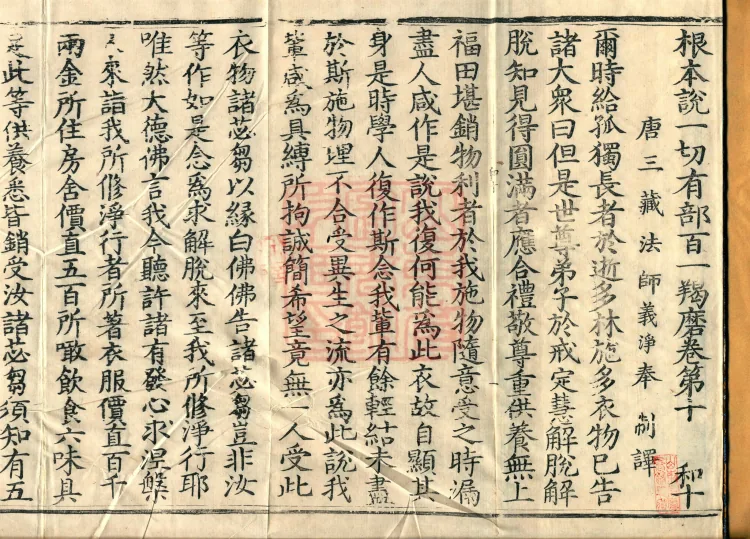 根本說一切有部百一羯磨卷第十 和十
唐三藏法師義淨奉 制譯
爾時給孤獨長者於逝多林施多衣物已告
諸大眾曰但是世尊弟子於戒定慧解脫解
脫知見得圓滿者應合禮敬尊重供養無上
福田堪銷物利者於我施物隨意受之時漏
盡人咸作是說我復何能為此衣故自顯其
身是時學人復作斯念我輩有餘輕結未盡
於斯施物理不合受異生之流亦為此說我
輩咸為具縛所拘誠簡希望竟無一人受此
衣物諸苾芻以緣白佛佛告諸苾芻豈非汝
等作如是念為求解脫來至我所修淨行耶
唯然大德佛言我今聽許諸有發心求涅槃
人來詣我所修淨行者所著衣服價直百千
兩金所住房舍價直五百所噉飲食六味具
足此等供養悉皆銷受汝諸苾芻須知有五